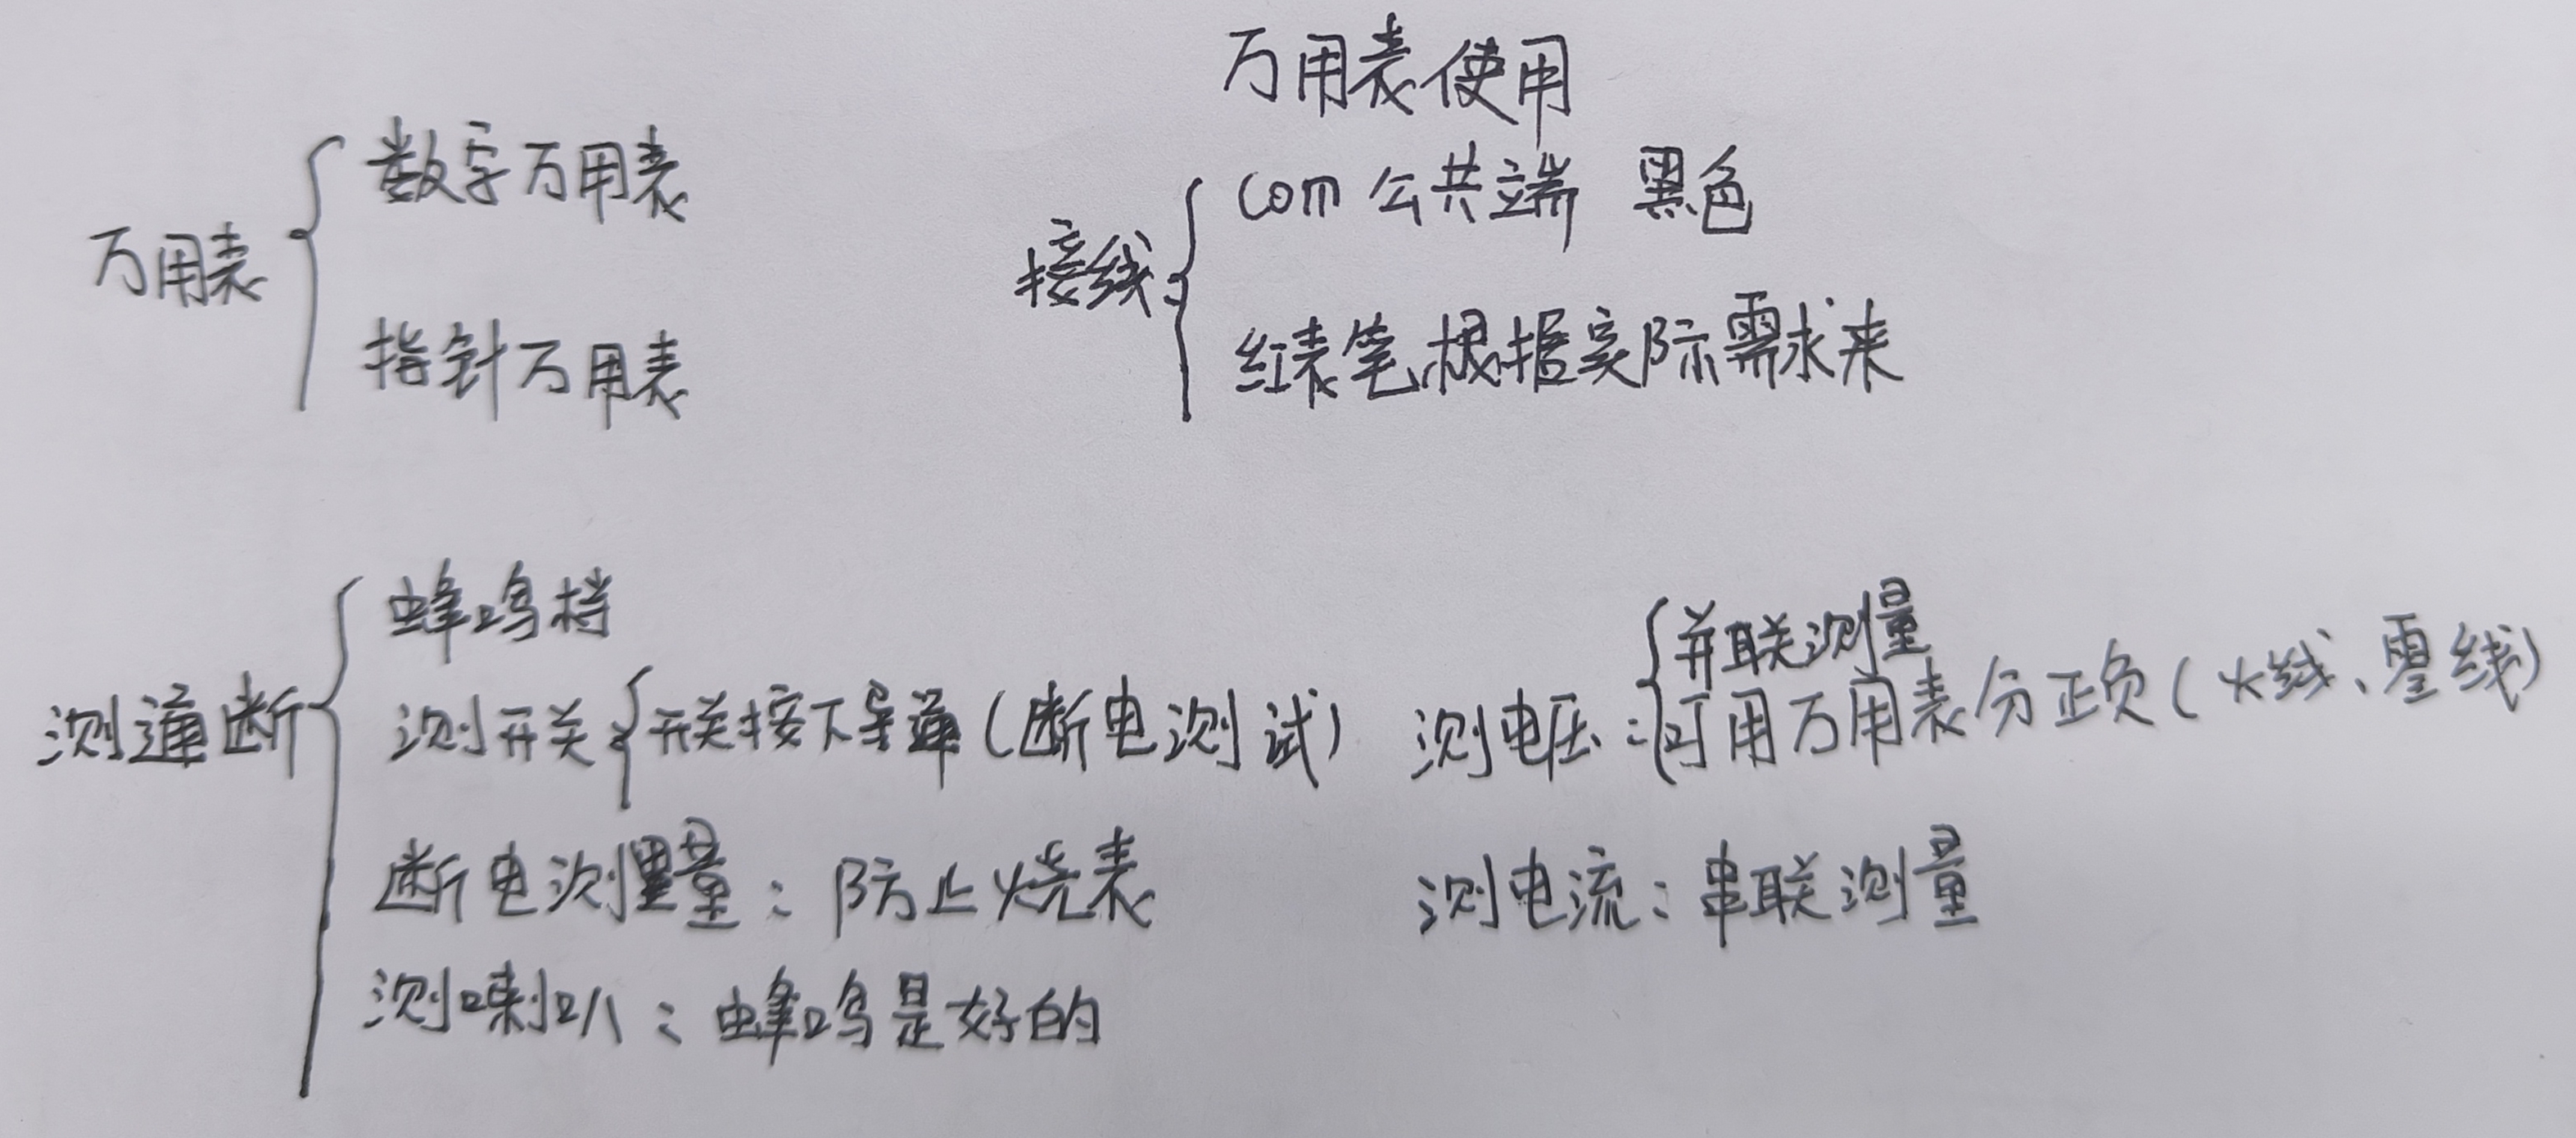 万用表使用
万用表
数字万用表
指针万用表
接线
com 公共端 黑色
红表笔根据实际需求来
测通断
蜂鸣档
测开关
开关按下导通(断电测试)
断电测量:防止烧表
测喇叭:蜂鸣是好的
测电压:
并联测量
可用万用表分正负(火线、零线)
测电流:串联测量